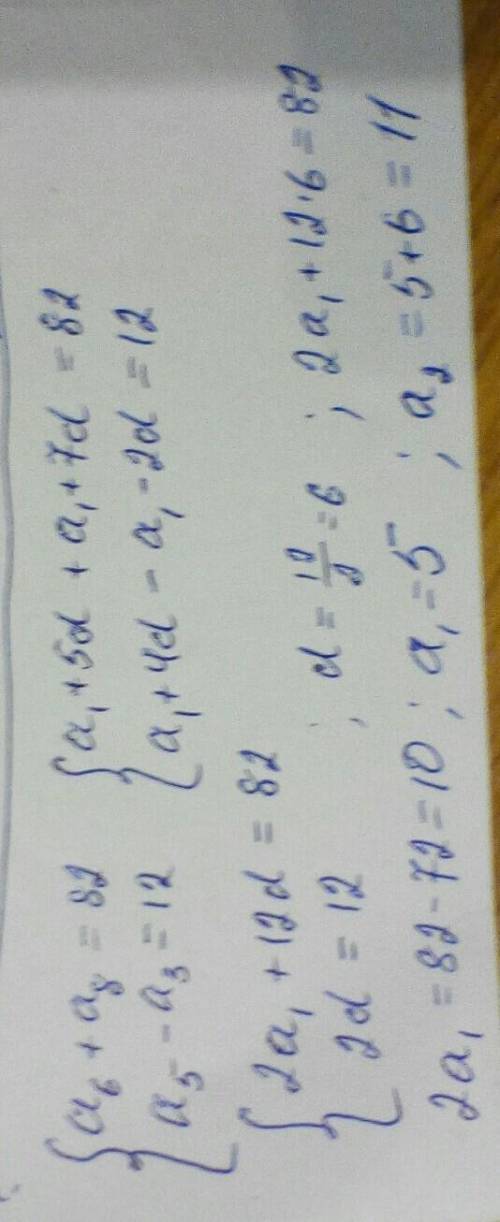 { a₆ + a₈ = 82 { a₁ + 5d + a₁ + 7d = 82
{ a₅ - a₃ = 12 { a₁ + 4d - a₁ - 2d = 12
{ 2a₁ + 12d = 82
{ 2d = 12 ; d = 12/2 = 6 ; 2a₁ + 12·6 = 82
2a₁ = 82 - 72 = 10 ; a₁ = 5 ; a₂ = 5 + 6 = 11